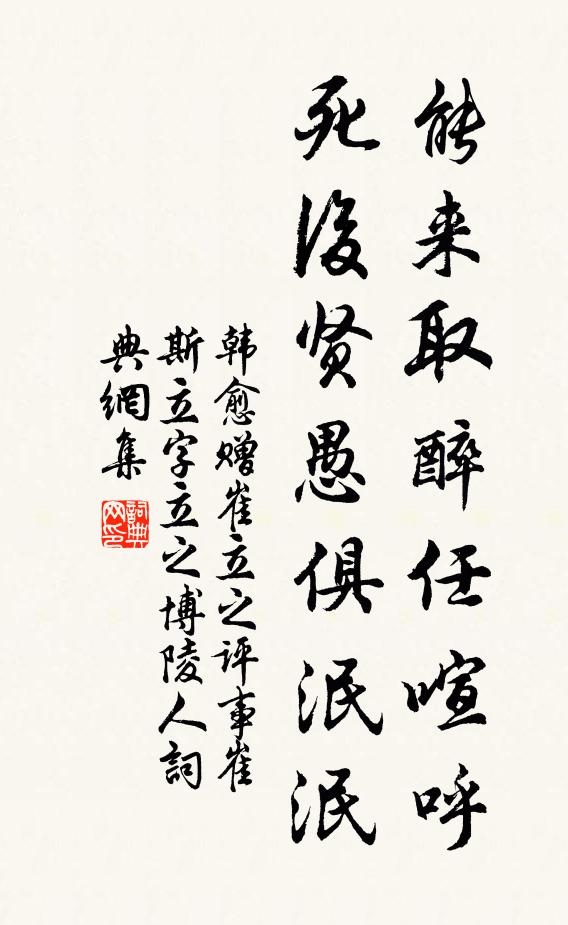 能来取醉任喧呼
死後贤愚俱泯泯
韩愈赠崔立之评事崔
斯立字立之博陵人詞
典網集
詞典网印